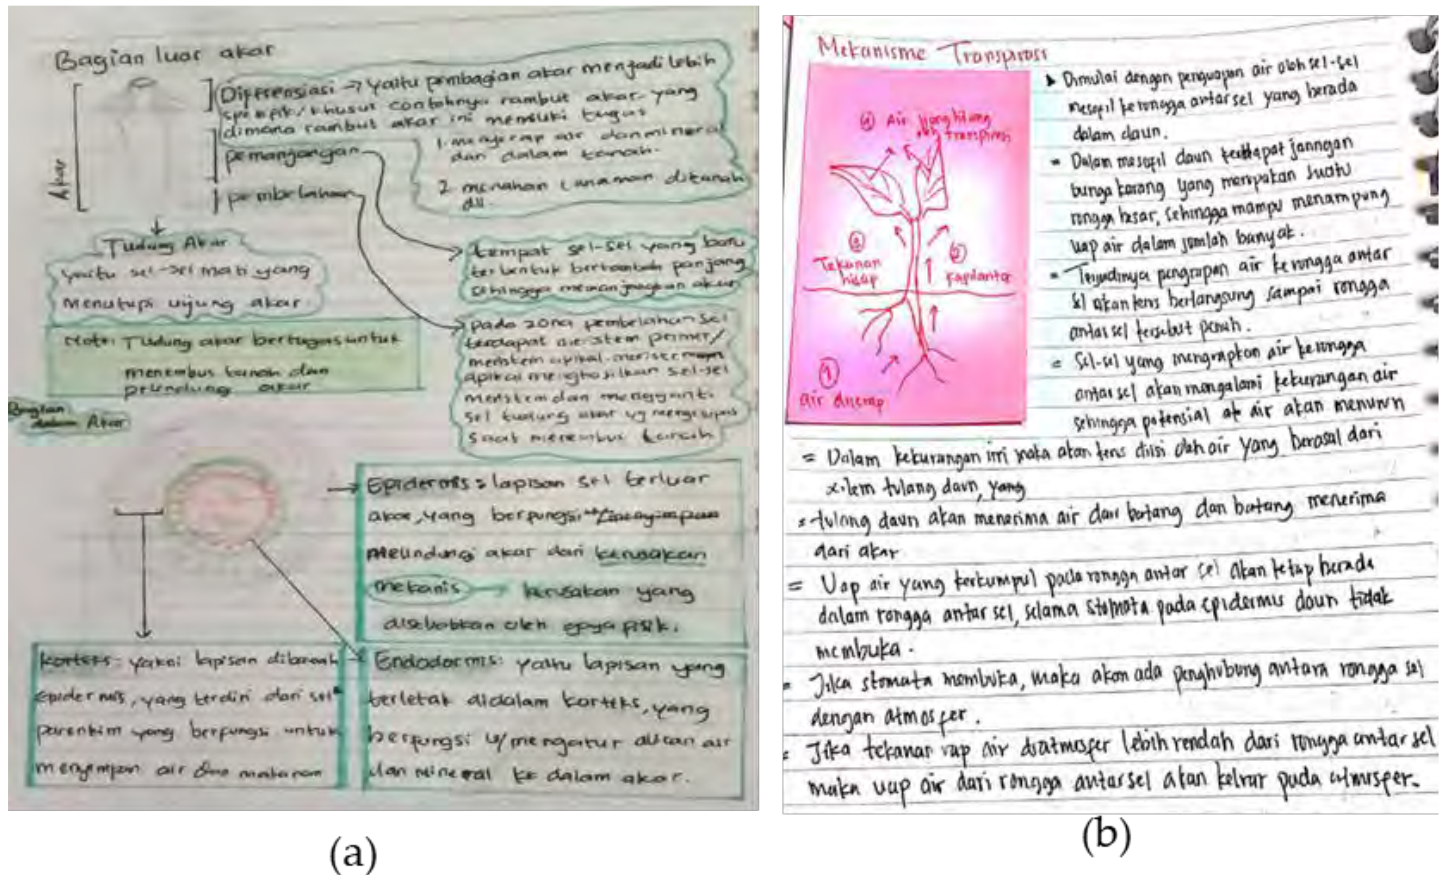 Bagian luar akar
Diferensiasi → yaitu pembagian akar menjadi lebih
spesifik/khusus contohnya rambut akar yang
dimana rambut akar ini memiliki tugas
1. menyerap air dan mineral
dari dalam tanah.
2. menahan tanaman ditanah
dll.
pemanjangan
pembelahan
Akar
Tudung Akar
yaitu sel-sel mati yang
menutupi ujung akar.
Note: Tudung akar bertugas untuk
menembus tanah dan
pelindung akar
tempat sel-sel yang baru
terbentuk bertambah panjang
sehingga memanjangkan akar
pada zona pembelahan sel
terdapat meristem primer/
meristem apikal. meristem
apikal menghasilkan sel-sel
meristem dan mengganti
sel tudung akar yg
saat menembus tanah
Bagian
dalam Akar
Epidermis = lapisan sel terluar
akar, yang berfungsi
melindungi akar dari kerusakan
mekanis → kerusakan yang
disebabkan oleh gaya fisik.
korteks: yakni lapisan dibawah
Epidermis, yang terdiri dari sel
parenkim yang berfungsi untuk
menyimpan air dan makanan
Endodermis: yaitu lapisan yang
terletak didalam korteks, yang
berfungsi u/mengatur aliran air
dan mineral ke dalam akar.
(a)
Mekanisme Transpirasi
④ Air yang hilang
oleh transpirasi
③
Tekanan
hisap
②
Kapilaritas
①
air diserap
Dimulai dengan penguapan air oleh sel-sel
mesofil kerongga antar sel yang berada
dalam daun.
= Dalam mesofil daun terdapat jaringan
bunga karang yang merupakan suatu
rongga besar, sehingga mampu menampung
uap air dalam jumlah banyak.
= Terjadinya penguapan air kerongga antar
sel akan terus berlangsung sampai rongga
antar sel tersebut penuh.
= Sel-sel yang menguapkan air kerongga
antar sel akan mengalami kekurangan air
sehingga potensial air akan menurun
= Dalam kekurangan ini maka akan terus diisi oleh air yang berasal dari
xilem tulang daun, yang
= tulang daun akan menerima air dari batang dan batang menerima
dari akar
= Uap air yang terkumpul pada rongga antar sel akan tetap berada
dalam rongga antar sel, selama stomata pada epidermis daun tidak
membuka.
= Jika stomata membuka, maka akan ada penghubung antara rongga sel
dengan atmosfer.
= Jika tekanan uap air diatmosfer lebih rendah dari rongga antar sel
maka uap air dari rongga antar sel akan keluar pada atmosper.
(b)